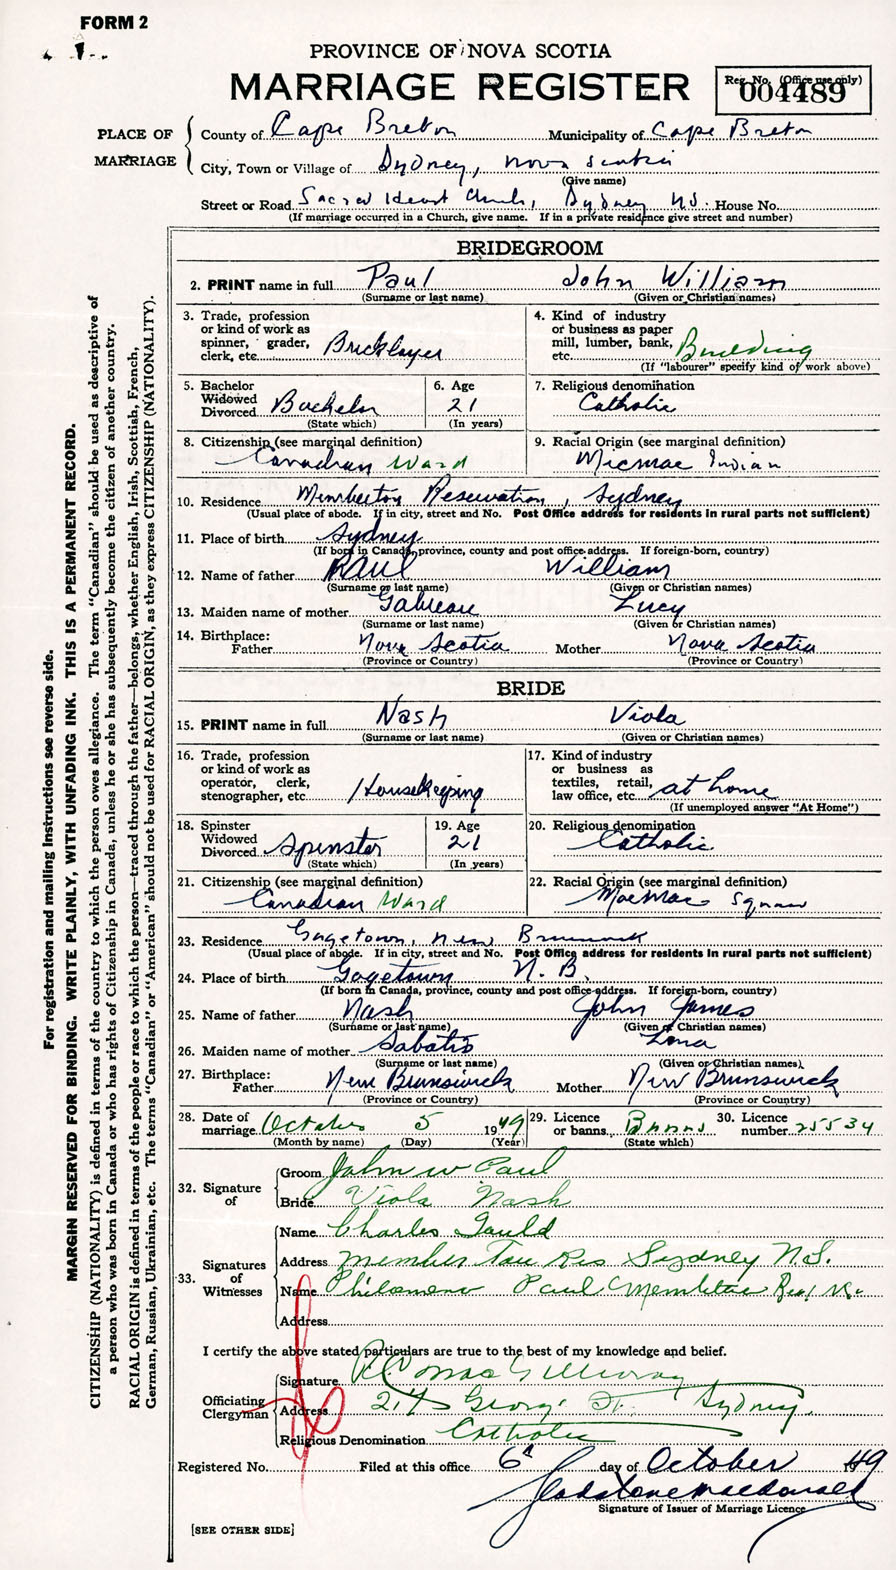 FORM 2
PROVINCE OF NOVA SCOTIA
MARRIAGE REGISTER
Reg. No. (Office use only)
004489
PLACE OF MARRIAGE
County of Cape Breton Municipality of Cape Breton
City, Town or Village of Sydney, Nova Scotia
(Give name)
Street or Road Sacred Heart Church, Sydney NS. House No.
(If marriage occurred in a Church, give name. If in a private residence give street and number)
BRIDEGROOM
2. PRINT name in full Paul John William
(Surname or last name) (Given or Christian names)
3. Trade, profession or kind of work as spinner, grader, clerk, etc. Bricklayer
4. Kind of industry or business as paper mill, lumber, bank, etc. Building
(If "labourer" specify kind of work above)
5. Bachelor Widowed Divorced Bachelor
(State which)
6. Age 21
(In years)
7. Religious denomination
Catholic
8. Citizenship (see marginal definition)
Canadian Ward
9. Racial Origin (see marginal definition)
Micmac Indian
10. Residence Memberton Reservation, Sydney
(Usual place of abode. If in city, street and No. Post Office address for residents in rural parts not sufficient)
11. Place of birth Sydney
(If born in Canada, province, county and post office address. If foreign-born, country)
12. Name of father PAUL William
(Surname or last name) (Given or Christian names)
13. Maiden name of mother Lucy
(Surname or last name) (Given or Christian names)
14. Birthplace:
Father Nova Scotia Mother Nova Scotia
(Province or Country) (Province or Country)
BRIDE
15. PRINT name in full Nash Viola
(Surname or last name) (Given or Christian names)
16. Trade, profession or kind of work as operator, clerk, stenographer, etc. Housekeeping
17. Kind of industry or business as textiles, retail, law office, etc. at home
(If unemployed answer "At Home")
18. Spinster Widowed Divorced Spinster
(State which)
19. Age 21
(In years)
20. Religious denomination
Catholic
21. Citizenship (see marginal definition)
Canadian Ward
22. Racial Origin (see marginal definition)
MacMac Squaw
23. Residence Gagetown, New Brunswick
(Usual place of abode. If in city, street and No. Post Office address for residents in rural parts not sufficient)
24. Place of birth Gagetown N. B.
(If born in Canada, province, county and post office address. If foreign-born, country)
25. Name of father Nash John James
(Surname or last name) (Given or Christian names)
26. Maiden name of mother Sabatis Lena
(Surname or last name) (Given or Christian names)
27. Birthplace:
Father New Brunswick Mother New Brunswick
(Province or Country) (Province or Country)
28. Date of marriage October 5 1949
(Month by name) (Day) (Year)
29. Licence or banns Banns
(State which)
30. Licence number 25534
32. Signature of
Groom John W Paul
Bride Viola Nash
33. Signatures of Witnesses
Name Charles Gould
Address Member Tou Res Sydney N.S.
Name Philomena Paul Membertou
Address
I certify the above stated particulars are true to the best of my knowledge and belief.
Officiating Clergyman
Signature
Address George St. Sydney
Religious Denomination Catholic
Registered No. Filed at this office 6 day of October 1949
Gladstone MacDonald
Signature of Issuer of Marriage Licence
[SEE OTHER SIDE]
For registration and mailing instructions see reverse side.
MARGIN RESERVED FOR BINDING. WRITE PLAINLY, WITH UNFADING INK. THIS IS A PERMANENT RECORD.
CITIZENSHIP (NATIONALITY) is defined in terms of the country to which the person owes allegiance. The term "Canadian" should be used as descriptive of
a person who was born in Canada or who has rights of Citizenship in Canada, unless he or she has subsequently become the citizen of another country.
RACIAL ORIGIN is defined in terms of the people or race to which the person—traced through the father—belongs, whether English, Irish, Scottish, French,
German, Russian, Ukrainian, etc. The terms "Canadian" or "American" should not be used for RACIAL ORIGIN, as they express CITIZENSHIP (NATIONALITY).